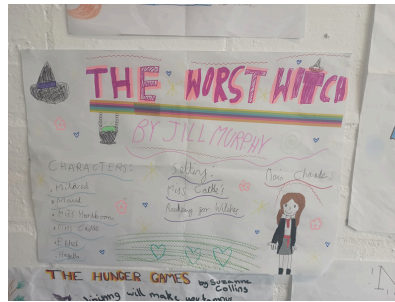 THE WORST WITCH
BY JILL MURPHY
CHARACTERS:
Mildred
Maud
Miss Hardbroom
Miss Cackle
Ethel
Setting:
Miss Cackle's
Academy for Witches
Main Character
THE HUNGER GAMES by Suzanne Collins
Winning will make you famous